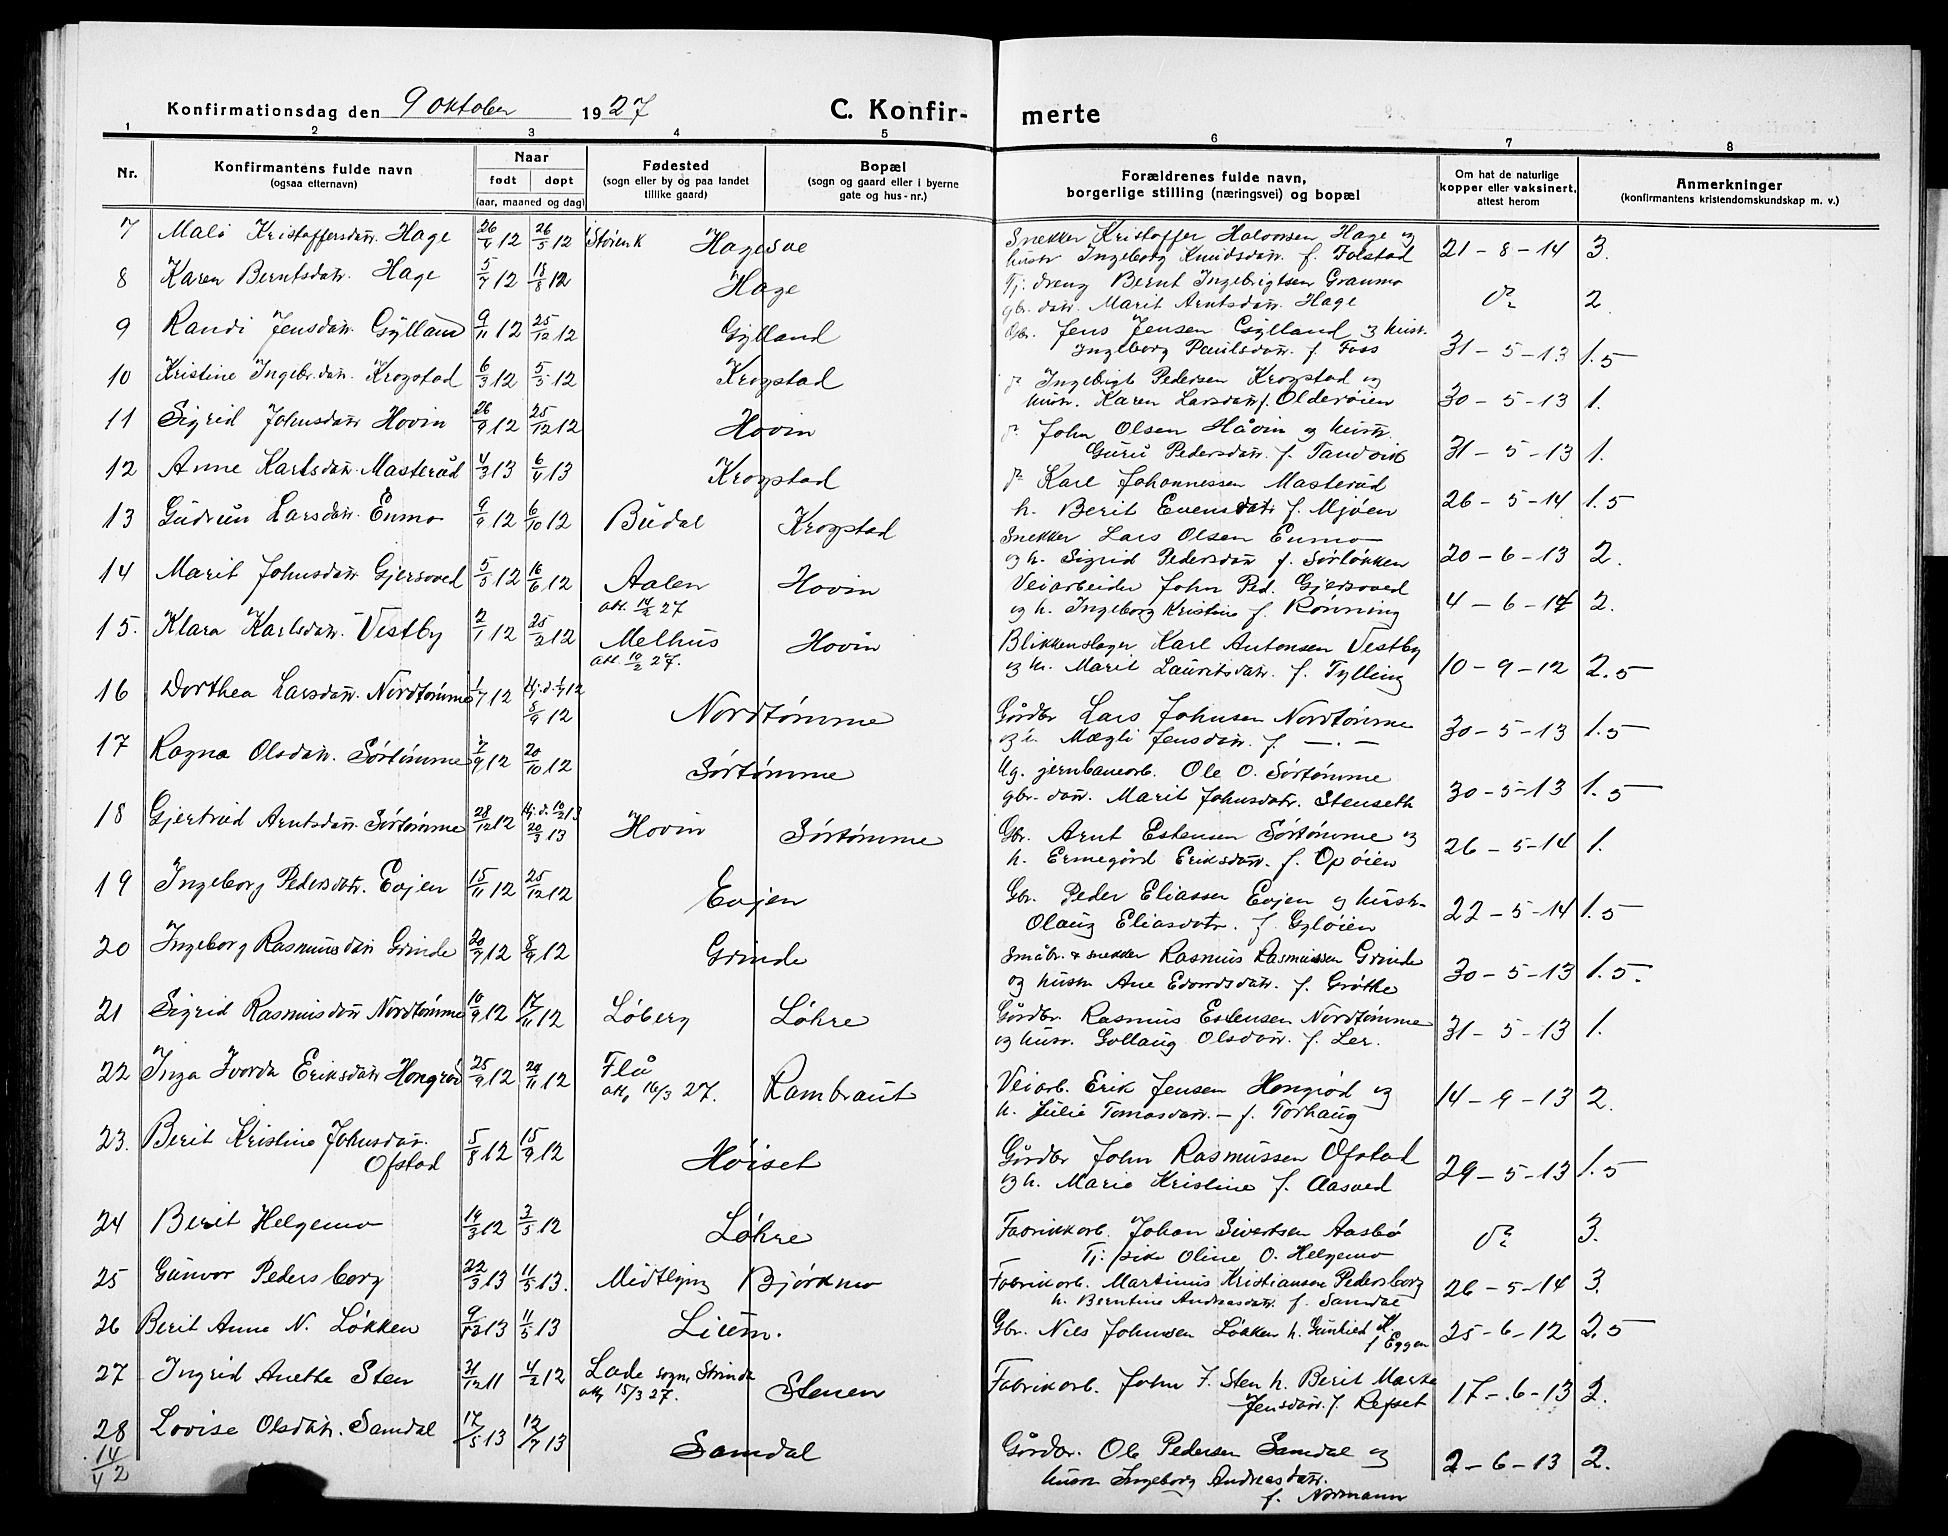 Konfirmationsdag den 9 oktober 1927 C. Konfir- merte
1 2 3 4 5 6 7 8
Nr. Konfirmantens fulde navn (ogsaa efternavn) Naar født døpt (aar, maaned og dag) Fødested (sogn eller by og paa landet tillike gaard) Bopæl (sogn og gaard eller i byerne gate og hus-nr.) Forældrenes fulde navn, borgerlige stilling (næringsvei) og bopæl Om hat de naturlige kopper eller vaksinert, attest herom Anmerkninger (konfirmantens kristendomskundskap m. v.)
7 Kristoffersdatr. Hage 26/4 12 26/5 12 Støren k Hagesve Snekker Kristoffer Halvorsen Hage og 21-8-14 3.
hustr Ingeborg Knudsdatr. f. Folstad
8 Karen Berntsdatr. Hage 5/7 12 18/8 12 Hage Tj. dreng Bernt Ingebrigtsen Granmo
gbr. datr. Marit Arntsdatr. Hage 2
9 Randi Jensdatr. Gylland 9/11 12 25/12 12 Gylland Gbr. Jens Jensen Gylland og hust.
Ingeborg Paulsdatr. f. Foss 31-5-13 1.5
10 Kristine Ingebr.datr. Krogstad 6/3 12 5/5 12 Krogstad Ingebrigt Pedersen Krogstad og
hustr. Karen Larsdatr f. Olderøien 30-5-13 1.
11 Sigrid Johnsdatr Hovin 26/9 12 25/12 12 Hovin John Olsen Håvin og hustr
Guru Pedersdatr. f. Tandvik 31-5-13 1.
12 Anne Karlsdatr. Masteråd 4/3 13 6/4 13 Krogstad Karl Johannessen Masteråd
h. Berit Evensdatr f. Mjøen 26-5-14 1.5
13 Gudrun Larsdatr. Enmo 9/9 12 6/10 12 Budal Krogstad Snekker Lars Olsen Enmo
og h. Sigrid Pedersdatr f. Sørløkken 20-6-13 2.
14 Marit Johnsdatr Gjersvoed 5/5 12 16/6 12 Aalen Hovin Veiarbeider John Ped. Gjersvoed
att. 14/2 27 og h. Ingeborg Kristine f. Rønning 4-6-14 2.
15. Klara Karlsdatr. Vestby 2/1 12 25/2 12 Melhus Hovin Blikkenslager Karl Antonsen Vestby
att. 10/2 27. og h. Marit Lauritsdatr. f. Tylling 10-9-12 2.5
16 Dorthea Larsdatr. Nordtømme 1/7 12 Hj.d. 1/7 12
8/9 12 Nordtømme Gårdbr Lars Johnsen Nordtømme
Mægli Jensdatr. f. —.— 30-5-13 1.5
17 Ragna Olsdatr. Sørtømme 7/9 12 20/10 12 Sørtømme Ug. jernbanearb. Ole O. Sørtømme
gbr. datr. Marit Johnsdatr. Stenseth 30-5-13 1.5
18 Gjertrud Arntsdatr. Sørtømme 28/12 12 Hj.d. 10/2 13
20/3 13 Hovin Sørtømme Gbr. Arnt Estensen Sørtømme og
h. Ermegård Eriksdatr. f. Opøien 26-5-14 1.
19 Ingeborg Pedersdatr. Evjen 15/11 12 25/12 12 Evjen Gbr. Peder Eliassen Evjen og hustr.
Olaug Eliasdatr. f. Gyløien 22-5-14 1.5
20 Ingeborg Rasmusdatr Grinde 20/7 12 8/9 12 Grinde Småbr. & snekker Rasmus Rasmussen Grinde
og hustr Ane Edvardsdatr. f. Grøthe 30-5-13 1.5.
21 Sigrid Rasmusdatr Nordtømme 10/9 12 17/11 12 Løberg Løhre Gårdbr Rasmus Estensen Nordtømme
og hustr. Gollaug Olsdatr. f. Ler. 31-5-13 1.
22 Inga Eriksdatr Hongrød 25/9 12 24/11 12 Flå Rambraut Veiarb. Erik Jensen Hongrød og
att. 16/3 27. h. Julie Tomasdatr. — f. Torhaug 14-9-13 2.
23. Berit Kristine Johnsdatr. Ofstad 5/8 12 15/9 12 Høiset Gårdbr John Rasmussen Ofstad
og h. Marie Kristine f. Aasved 29-5-13 1.5
24 Berit Helgemo 14/3 12 3/5 12 Løhre Fabrikkarb. Johan Sivertsen Aasbø
Tj: pike Oline O. Helgemo 3.
25 Gunvor Pedersborg 22/3 13 11/5 13. Midtlyng Bjørkmo Fabrikarb. Martinus Kristiansen Pedersborg
h. Berntine Andreasdatr. f. Samdal 26-5-14 3.
26 Berit Anne N. Løkken 9/12 13 11/5 13 Lium. Gbr. Niels Johnsen Løkken h. Gunhild H.
f Eggen 25-6-12 2.5
27 Ingrid Anette Sten 21/12 11 4/2 12 Lade sogn, Strinda Stenen Fabrikarb. John J. Sten h. Berit Marta
att. 15/3 27. Jensdatr. f. Refset 17-6-13 2.
28 Lovise Olsdatr. Samdal 17/5 13 12/7 13 Samdal Gårdbr. Ole Pedersen Samdal og
14/42 hustr Ingeborg Andreasdatr. 2-6-13 2.
f. Normann